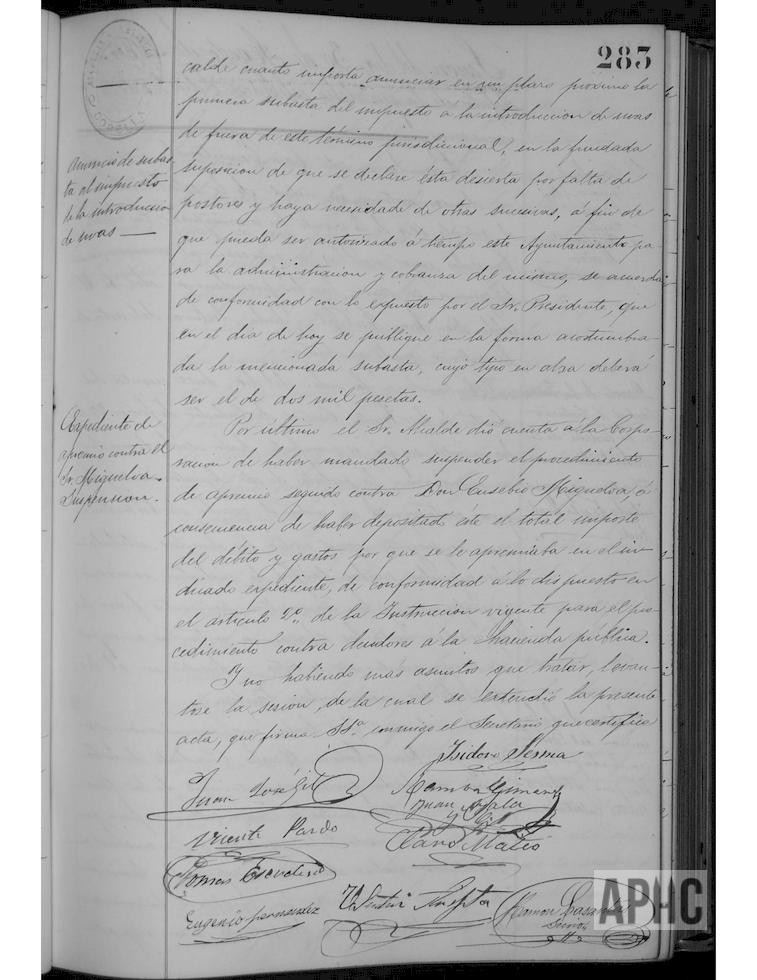 283
calde cuánto importa anunciar en un plazo próximo la
primera subasta del impuesto a la introducción de uvas
de fuera de este término jurisdiccional, en la fundada
suposición de que se declare ésta desierta por falta de
postores y haya necesidad de otras sucesivas, á fin de
que pueda ser autorizado á tiempo este Ayuntamiento pa-
ra la administración y cobranza del mismo, se acuerda
de conformidad con lo expuesto por el Sr. Presidente, que
en el dia de hoy se publique en la forma acostumbra-
da la mencionada subasta, cuyo tipo en alza deberá
ser el de dos mil pesetas.
Anuncio de subas-
ta al impuesto
de la introducción
de uvas —
Por último el Sr. Alcalde dió cuenta á la Corpo-
ración de haber mandado suspender el procedimiento
de apremio seguido contra Don Eusebio Miguelva á
consecuencia de haber depositado éste el total importe
del débito y gastos por que se le apremiaba en el in-
dicado expediente, de conformidad á lo dispuesto en
el artículo 2º. de la Instrucción vigente para el pro-
cedimiento contra deudores á la Hacienda pública.
Expediente de
apremio contra el
Sr. Miguelva.
Suspensión.
Y no habiendo más asuntos que tratar, levan-
tose la sesión, de la cual se extendió la presente
acta, que firma SSª. conmigo el Secretario que certifico
Isidoro Lerma
Juan José Gil
Ramon Gimenez
Juan
y Gil
Vicente Pardo
Mateo
Tomas Escudero
Eugenio Fernandez
Ramon
APHC